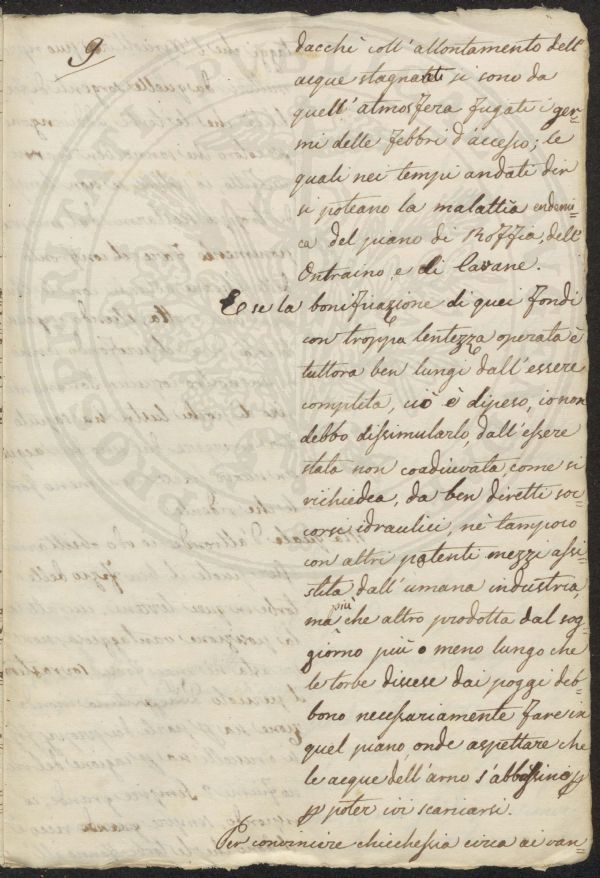 9
dacchè coll'allontamento dell'
acque stagnanti si sono da
quell'atmosfera fugati i ger=
mi delle febbri d'accesso; le
quali nei tempi andati dir
si poteano la malattia endemi=
ca del piano di Roffia, dell'
Ontraino, e di Cavane.
E se la bonificazione di quei fondi
con troppa lentezza operata è
tuttora ben lungi dall'essere
completa, ciò è dipeso, io non
debbo dissimularlo, dall'essere
stata non coadiuvata, come si
richiedea, da ben diretti soc=
corsi idraulici, nè tampoco
con altri potenti mezzi assi=
stita, dall'umana industria,
ma più che altro prodotta dal sog=
giorno più o meno lungo che
le torbe discese dai poggi deb=
bono necessariamente fare in
quel piano onde aspettare che
le acque dell'arno s'abbassino
poter ivi scaricarsi.
Per convincere chicchessia circa ai van=